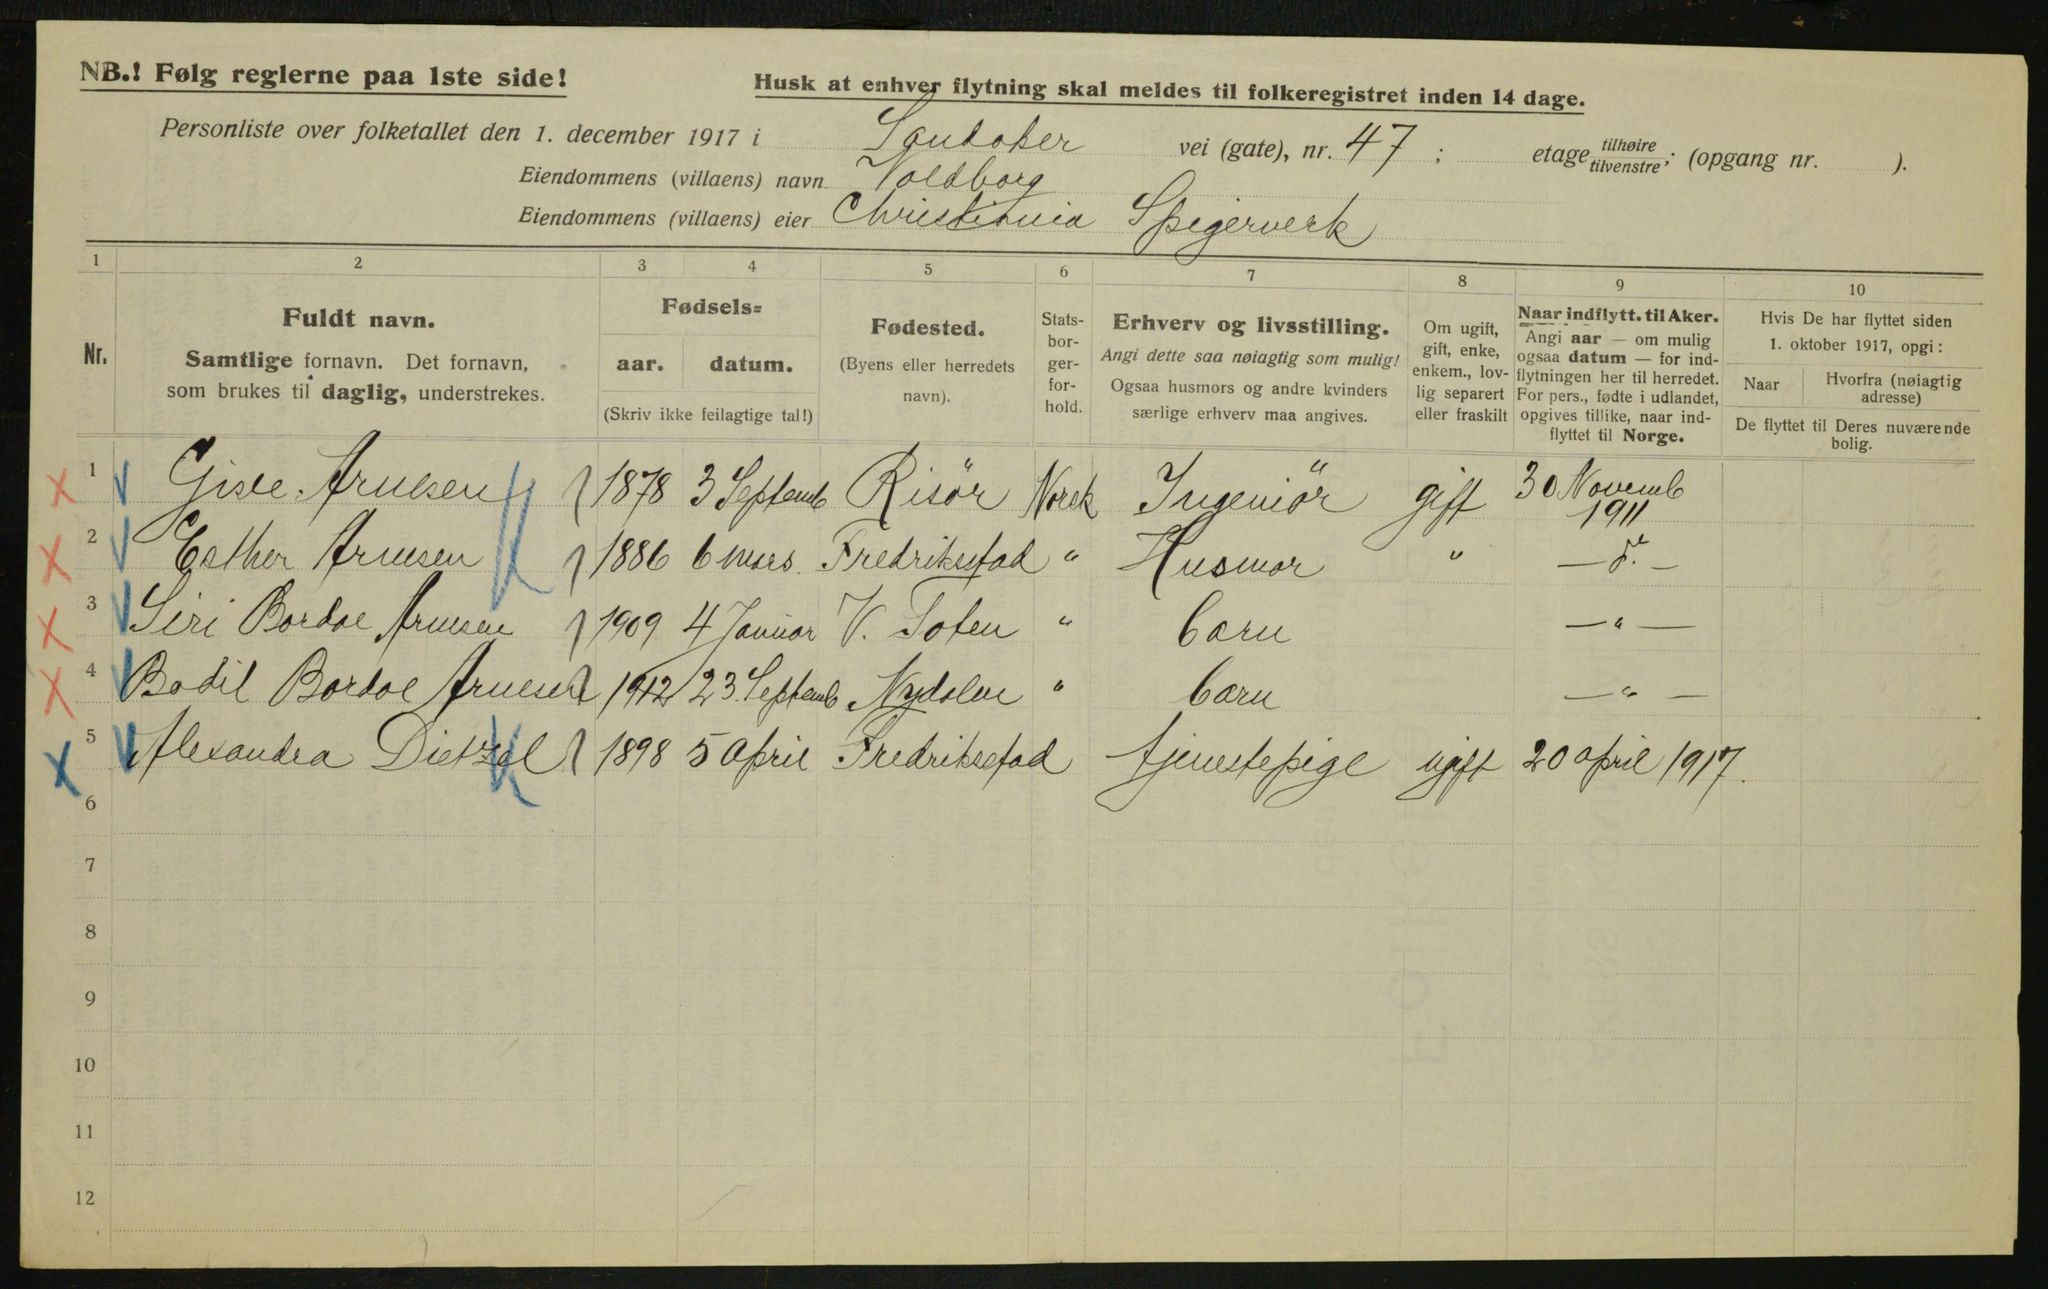 NB.! Følg reglerne paa 1ste side!
Husk at enhver flytning skal meldes til folkeregistret inden 14 dage.
Personliste over folketallet den 1. december 1917 i Sandaker vei (gate), nr. 47; etage tilhøire tilvenstre; (opgang nr. ).
Eiendommens (villaens) navn Voldborg
Eiendommens (villaens) eier Christiania Spigerverk
1 2 3 4 5 6 7 8 9 10
Nr.
Fuldt navn.
Samtlige fornavn. Det fornavn,
som brukes til daglig, understrekes.
Fødsels=
aar. datum.
(Skriv ikke feilagtige tal!)
Fødested.
(Byens eller herredets
navn).
Stats-
bor-
ger-
for-
hold.
Erhverv og livsstilling.
Angi dette saa nøiagtig som mulig!
Ogsaa husmors og andre kvinders
særlige erhverv maa angives.
Om ugift,
gift, enke,
enkem., lov-
lig separert
eller fraskilt
Naar indflytt. til Aker.
Angi aar — om mulig
ogsaa datum — for ind-
flytningen her til herredet.
For pers., fødte i udlandet,
opgives tillike, naar ind-
flyttet til Norge.
Hvis De har flyttet siden
1. oktober 1917, opgi:
Naar Hvorfra (nøiagtig
adresse)
De flyttet til Deres nuværende
bolig.
1 Arnesen 1878 3 Septemb Risör Norsk Ingeniör gift 30 Novemb 1911
2 Esther Arnesen 1886 6 mars. Fredriksstad " Husmor " — d° —
3 Siri Bordoe Arnesen 1909 4 Januar V. Toten " barn — " —
4 Bodil Bordoe Arnesen 1912 23. Septemb Nydalen " barn — " —
5 Alexandra Dietzel 1898 5 april Fredriksstad tjenestepige ugift 20 april 1917.
6
7
8
9
10
11
12